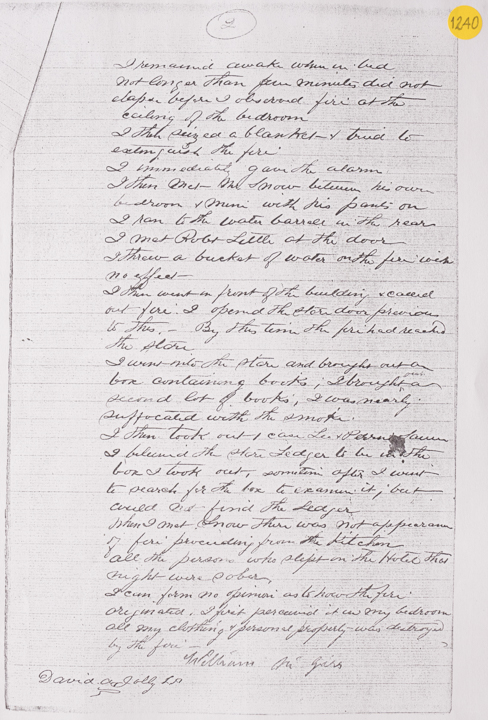 2
1240
I remained awake when in bed
not longer than four minutes did not
elapse before I observed fire at the
ceiling of the bedroom
I then seized a blanket & tried to
extinguish the fire
I immediately gave the alarm
I then met Mr Snow between his own
bedroom & mine with his pants on
I ran to the water barrel in the rear
I met Robt Little at the door
I threw a bucket of water on the fire with
no effect
I then went in front of the building & called
out fire. I opened the store door previous
to this. — By this time the fire had reached
the store
I went into the store and brought out a
box containing books; I brought out a
second lot of books, I was nearly
suffocated with the smoke.
I then took out 1 case Lea & Perrins Sauce
I believed the store Ledger to be in the
box I took out, sometime after I went
to search for the box to examine it; but
could not find the Ledger
When I met Snow there was not appearance
of fire proceeding from the Kitchen
all the persons who slept in the Hotel that
night were sober,
I can form no opinion as to how the fire
originated, I first perceived it in my bedroom
all my clothing & personal property was destroyed
by the fire —
William
David Jolly